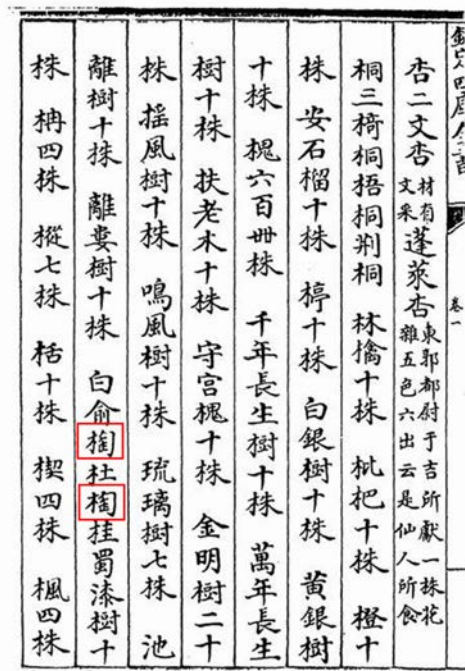 欽定四庫全書
卷一
杏二文杏材有文采蓬萊杏東郭都尉于吉所獻一株花雜五色六出云是仙人所食
桐三椅桐梧桐荆桐 林檎十株 枇杷十株 橙十
株 安石榴十株 楟十株 白銀樹十株 黄銀樹
十株 槐六百卌株 千年長生樹十株 萬年長生
樹十株 扶老木十株 守宫槐十株 金明樹二十
株 揺風樹十株 鳴風樹十株 琉璃樹七株 池
離樹十株 離婁樹十株 白俞㭘杜㭘桂蜀漆樹十
株 柟四株 樅七株 栝十株 楔四株 楓四株